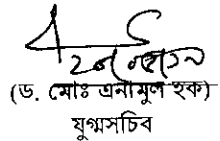 (ড. মোঃ এনামুল হক)
যুগ্মসচিব